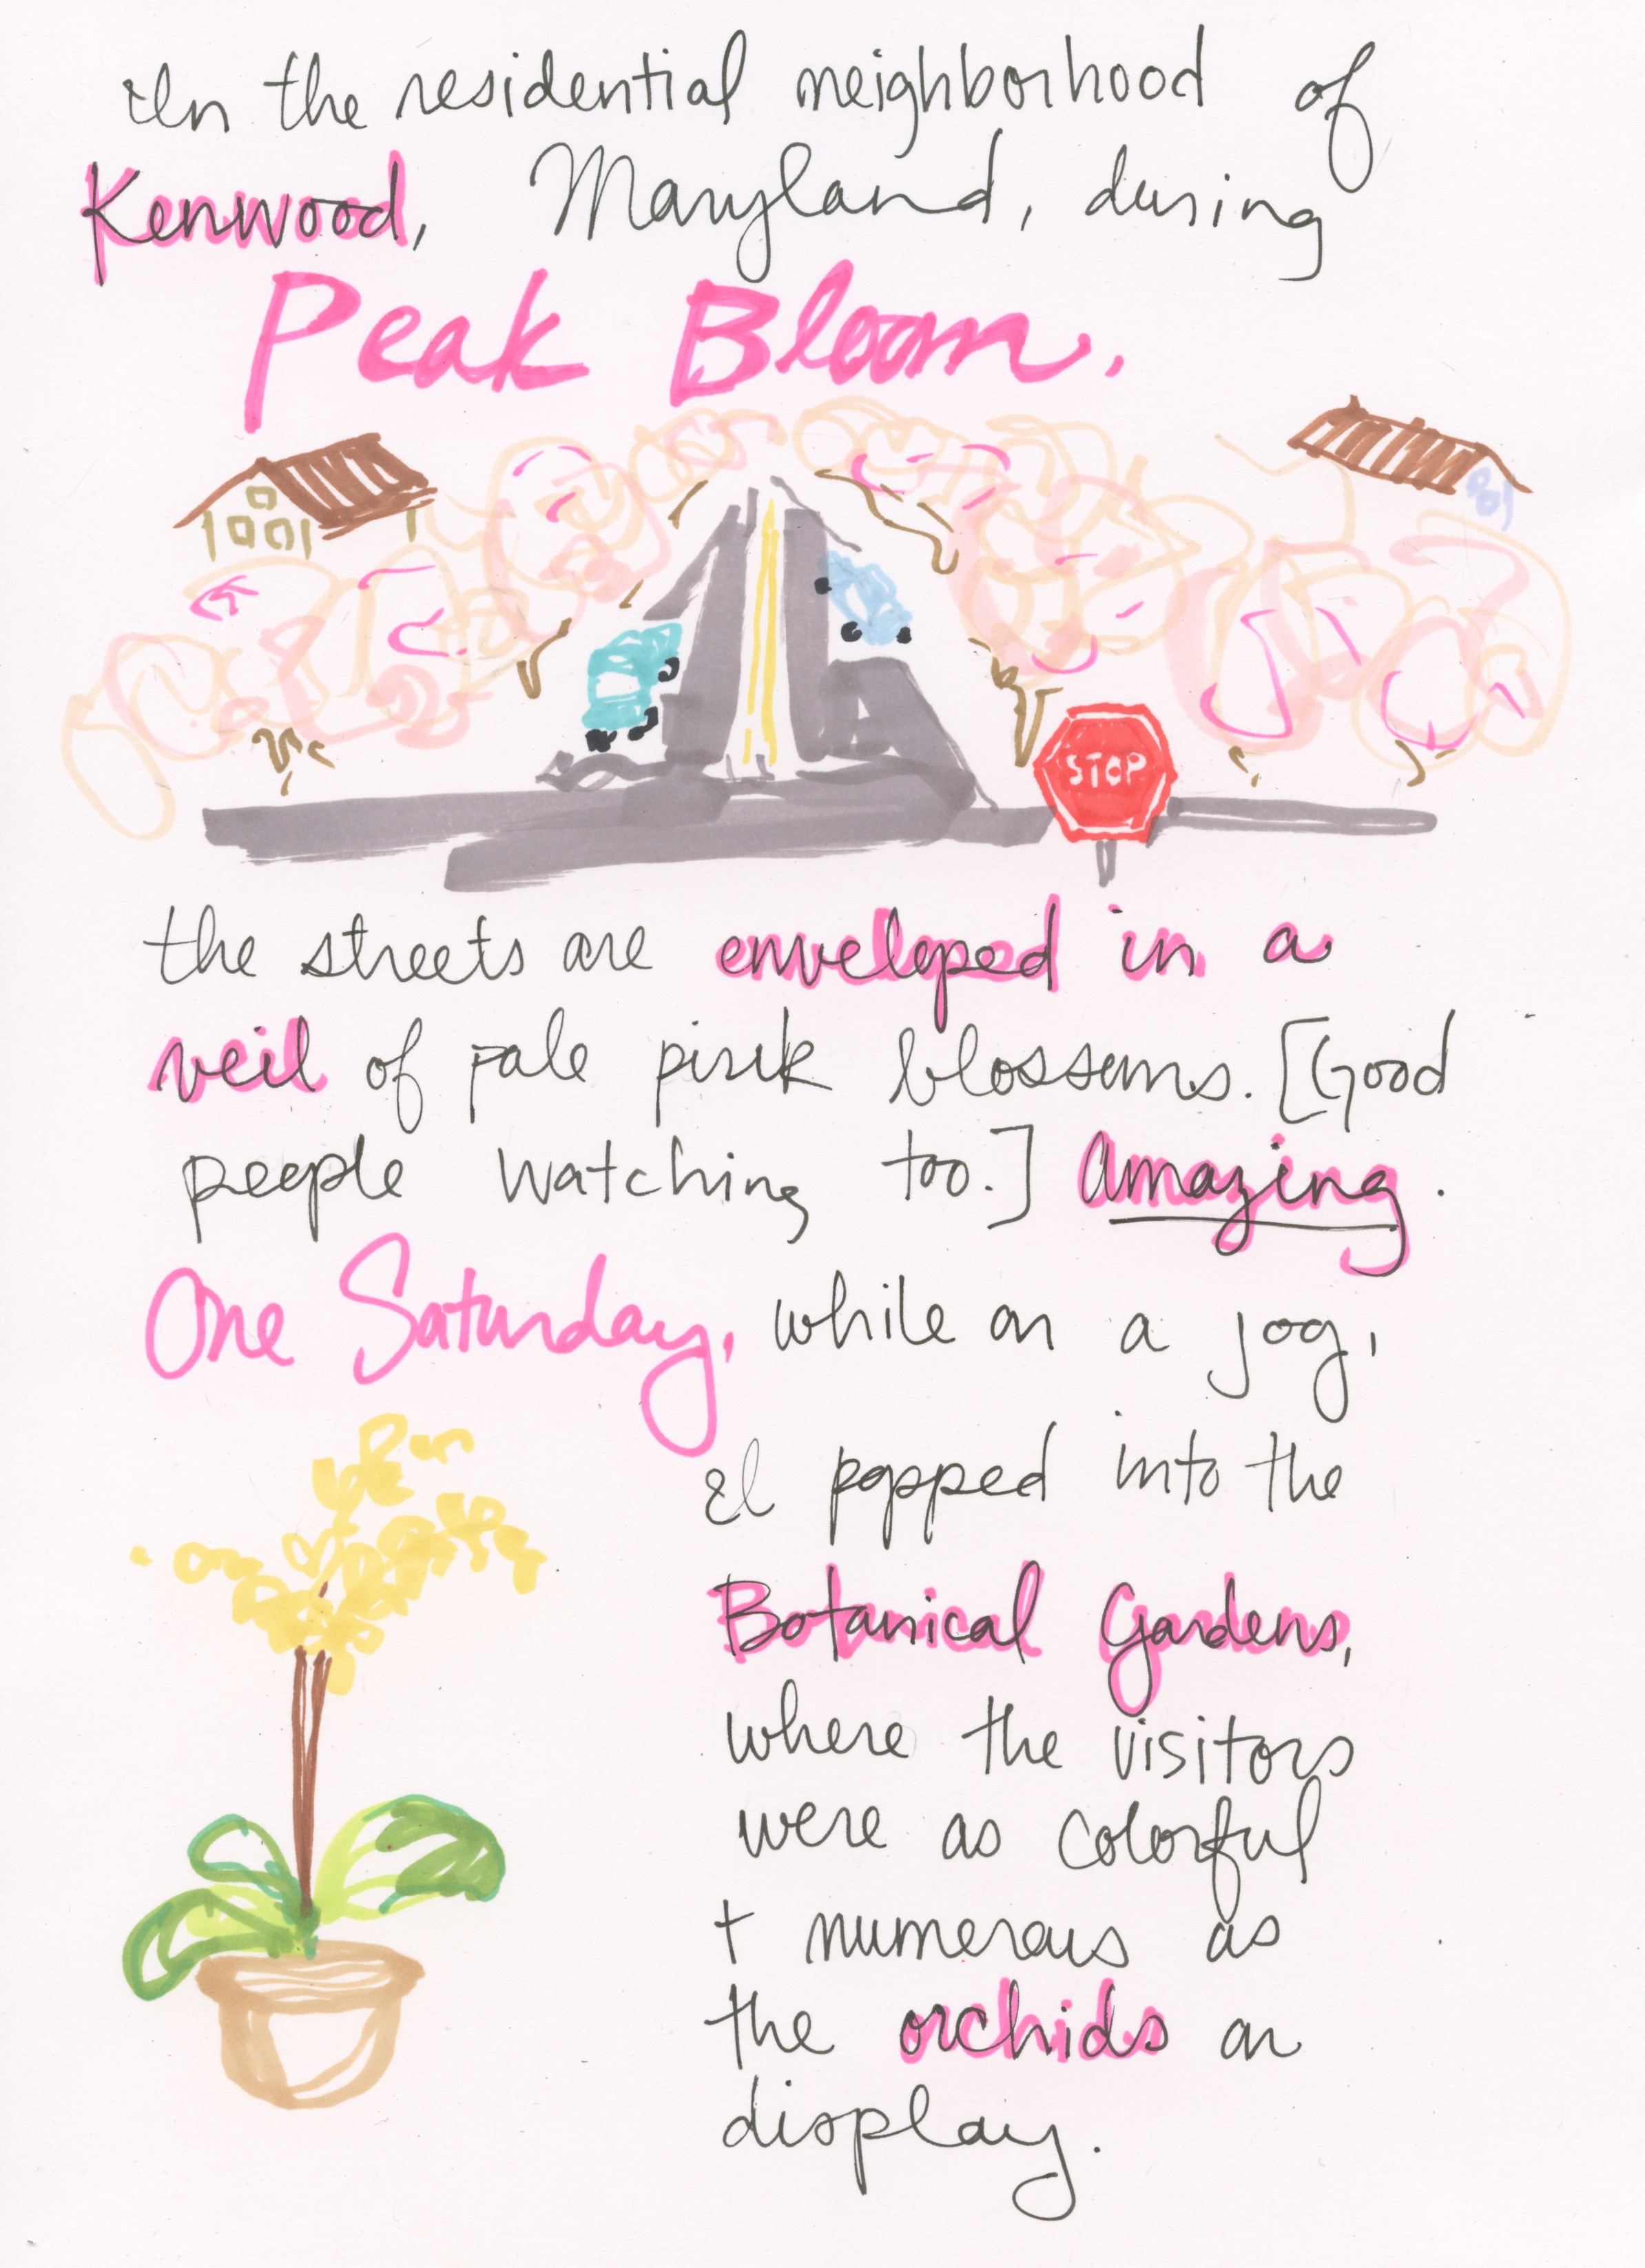 In the residential neighborhood of
Kenwood, Maryland, during
Peak Bloom.
STOP
the streets are enveloped in a
veil of pale pink blossoms. [Good
people watching too.] Amazing.
One Saturday, while on a jog,
I popped into the
Botanical Gardens,
where the visitors
were as colorful
+ numerous as
the orchids on
display.